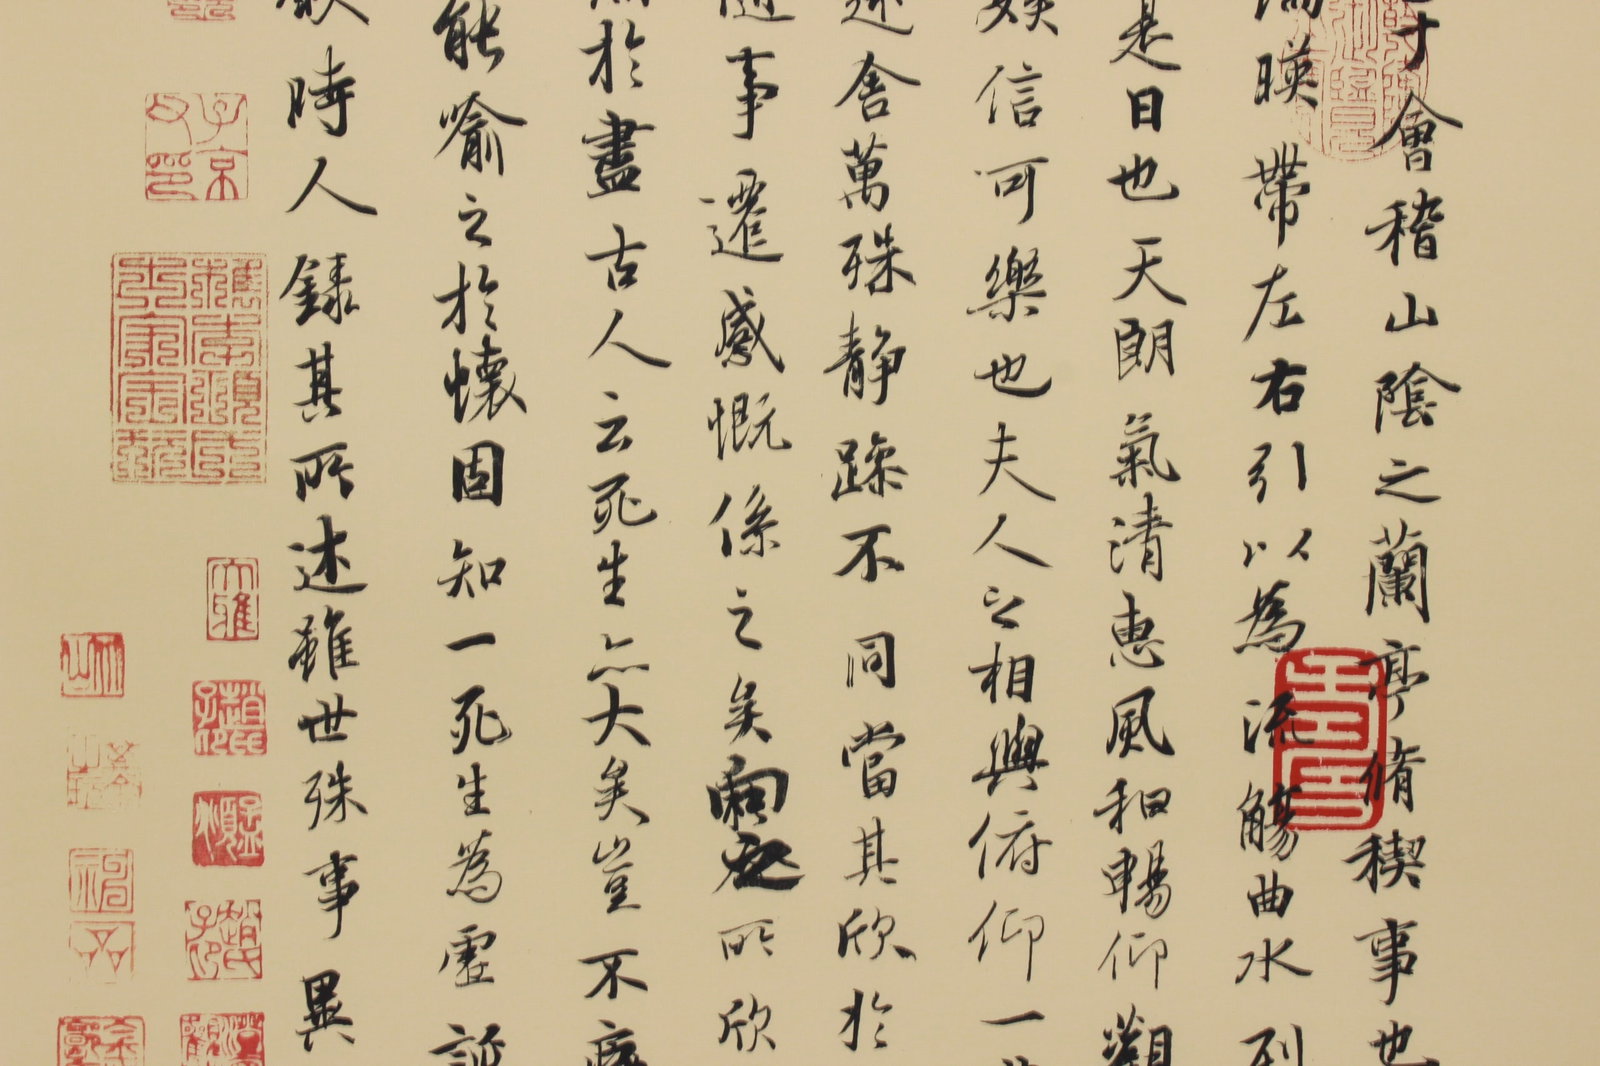 會稽山陰之蘭亭脩稧事也
暎帶左右引以為流觴曲水列
是日也天朗氣清惠風和暢仰觀
娛信可樂也夫人之相與俯仰一
舍萬殊靜躁不同當其欣於
隨事遷感慨係之矣向之所欣
於盡古人云死生亦大矣豈不痛
能喻之於懷固知一死生為虛誕
時人錄其所述雖世殊事異
子京父印
大雅